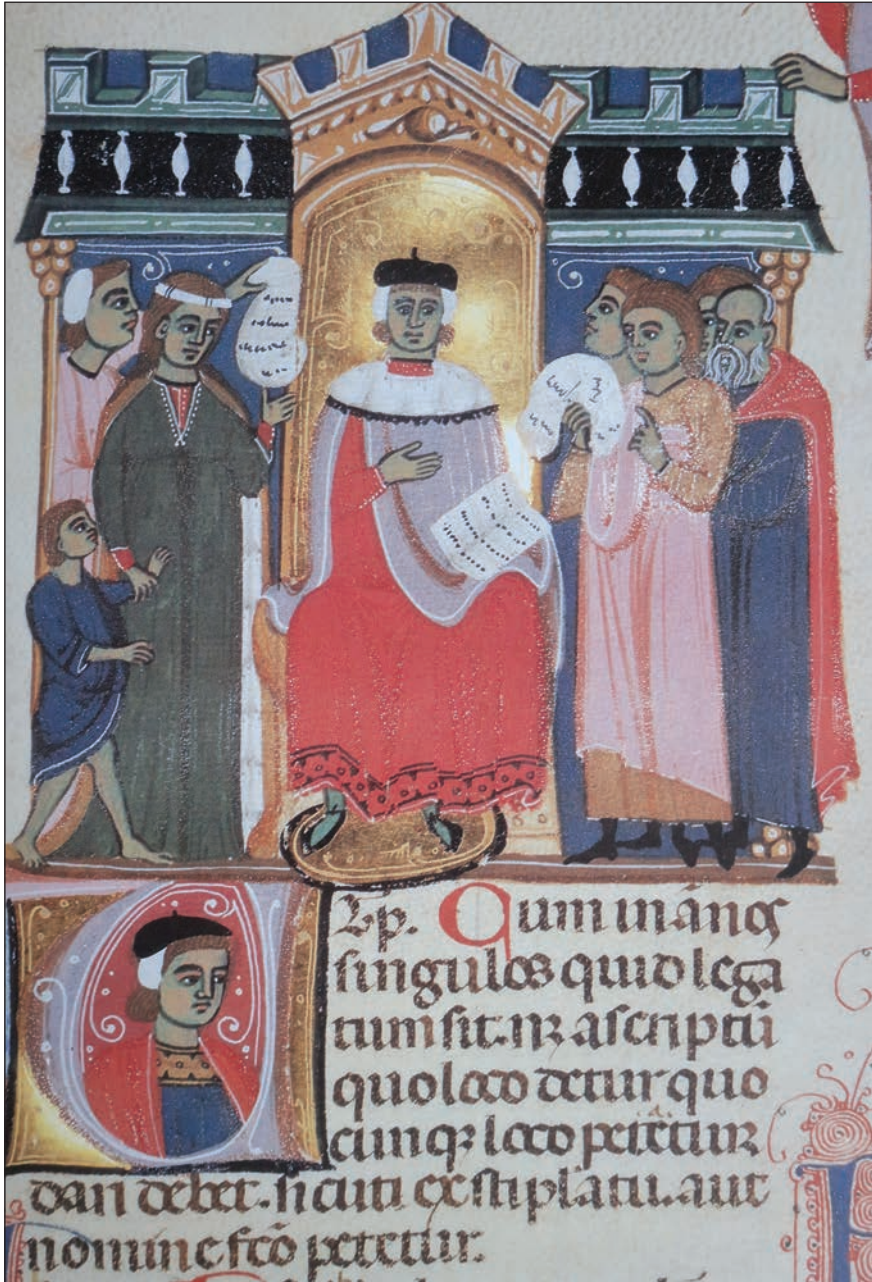 Qum in ānos
singulos quid lega
tum sit. ascriptū
quo loco detur quo
cunqꝫ loco petetur
dari debet. sicuti ex stiplatu. aut
nomine fc̄o petetur.